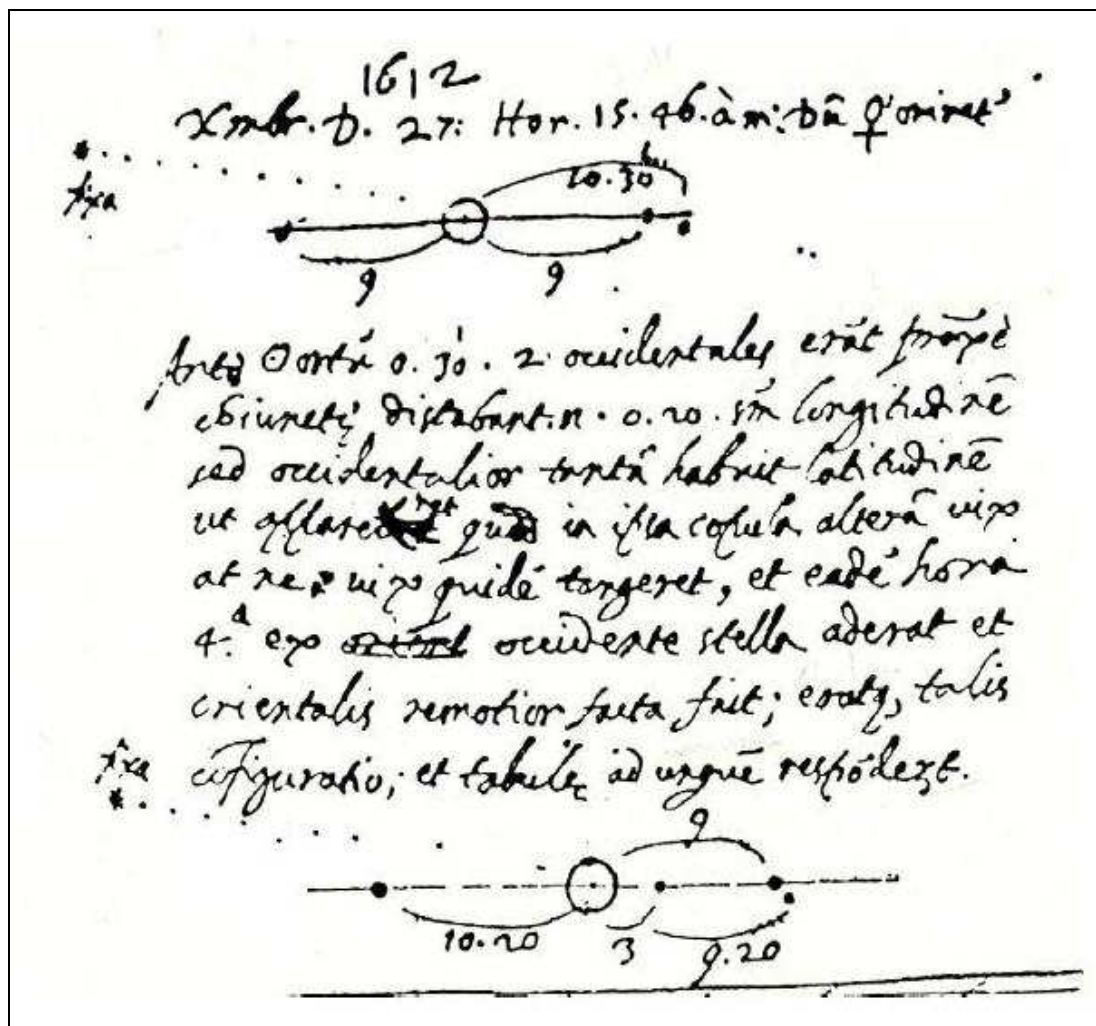 1612
Xmbr. D. 27: Hor. 15. 46. à m: Dū ♀ oriret'
fixa
10.30
9 9
Ante ☉ ortũ 0. 30. 2 occidentales erãt
distabant. n. 0.20. sm longitudinẽ
sed occidentalior tantã habuit latitudinẽ
ut in ipsa alterã vix
at ne vix quidẽ tangeret, et eadẽ hora
4.a ex occidente stella aderat et
orientalis remotior facta fuit; eratq, talis
cõfiguratio; et tabulę ad unguẽ respõdent.
fixa
9
10.20 3 9.20